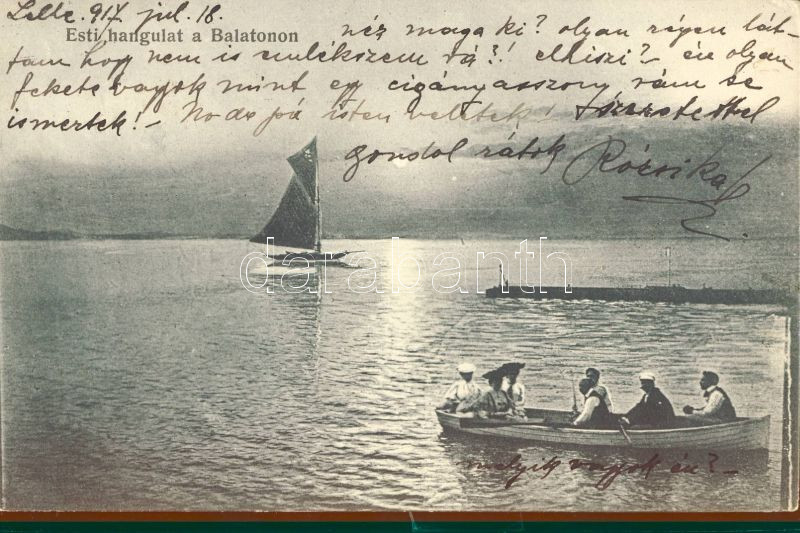 Lelle. 917 jul. 18.
Esti hangulat a Balatonon
néz maga ki? olyan régen lát-
tam hogy nem is emlékszem rá?! elhiszi? - én olyan
fekete vagyok mint egy cigányasszony rám se
ismertek! - No de jó isten veletek! szeretettel
gondol rátok Rózsika
darabanth
melyik vagyok én? -